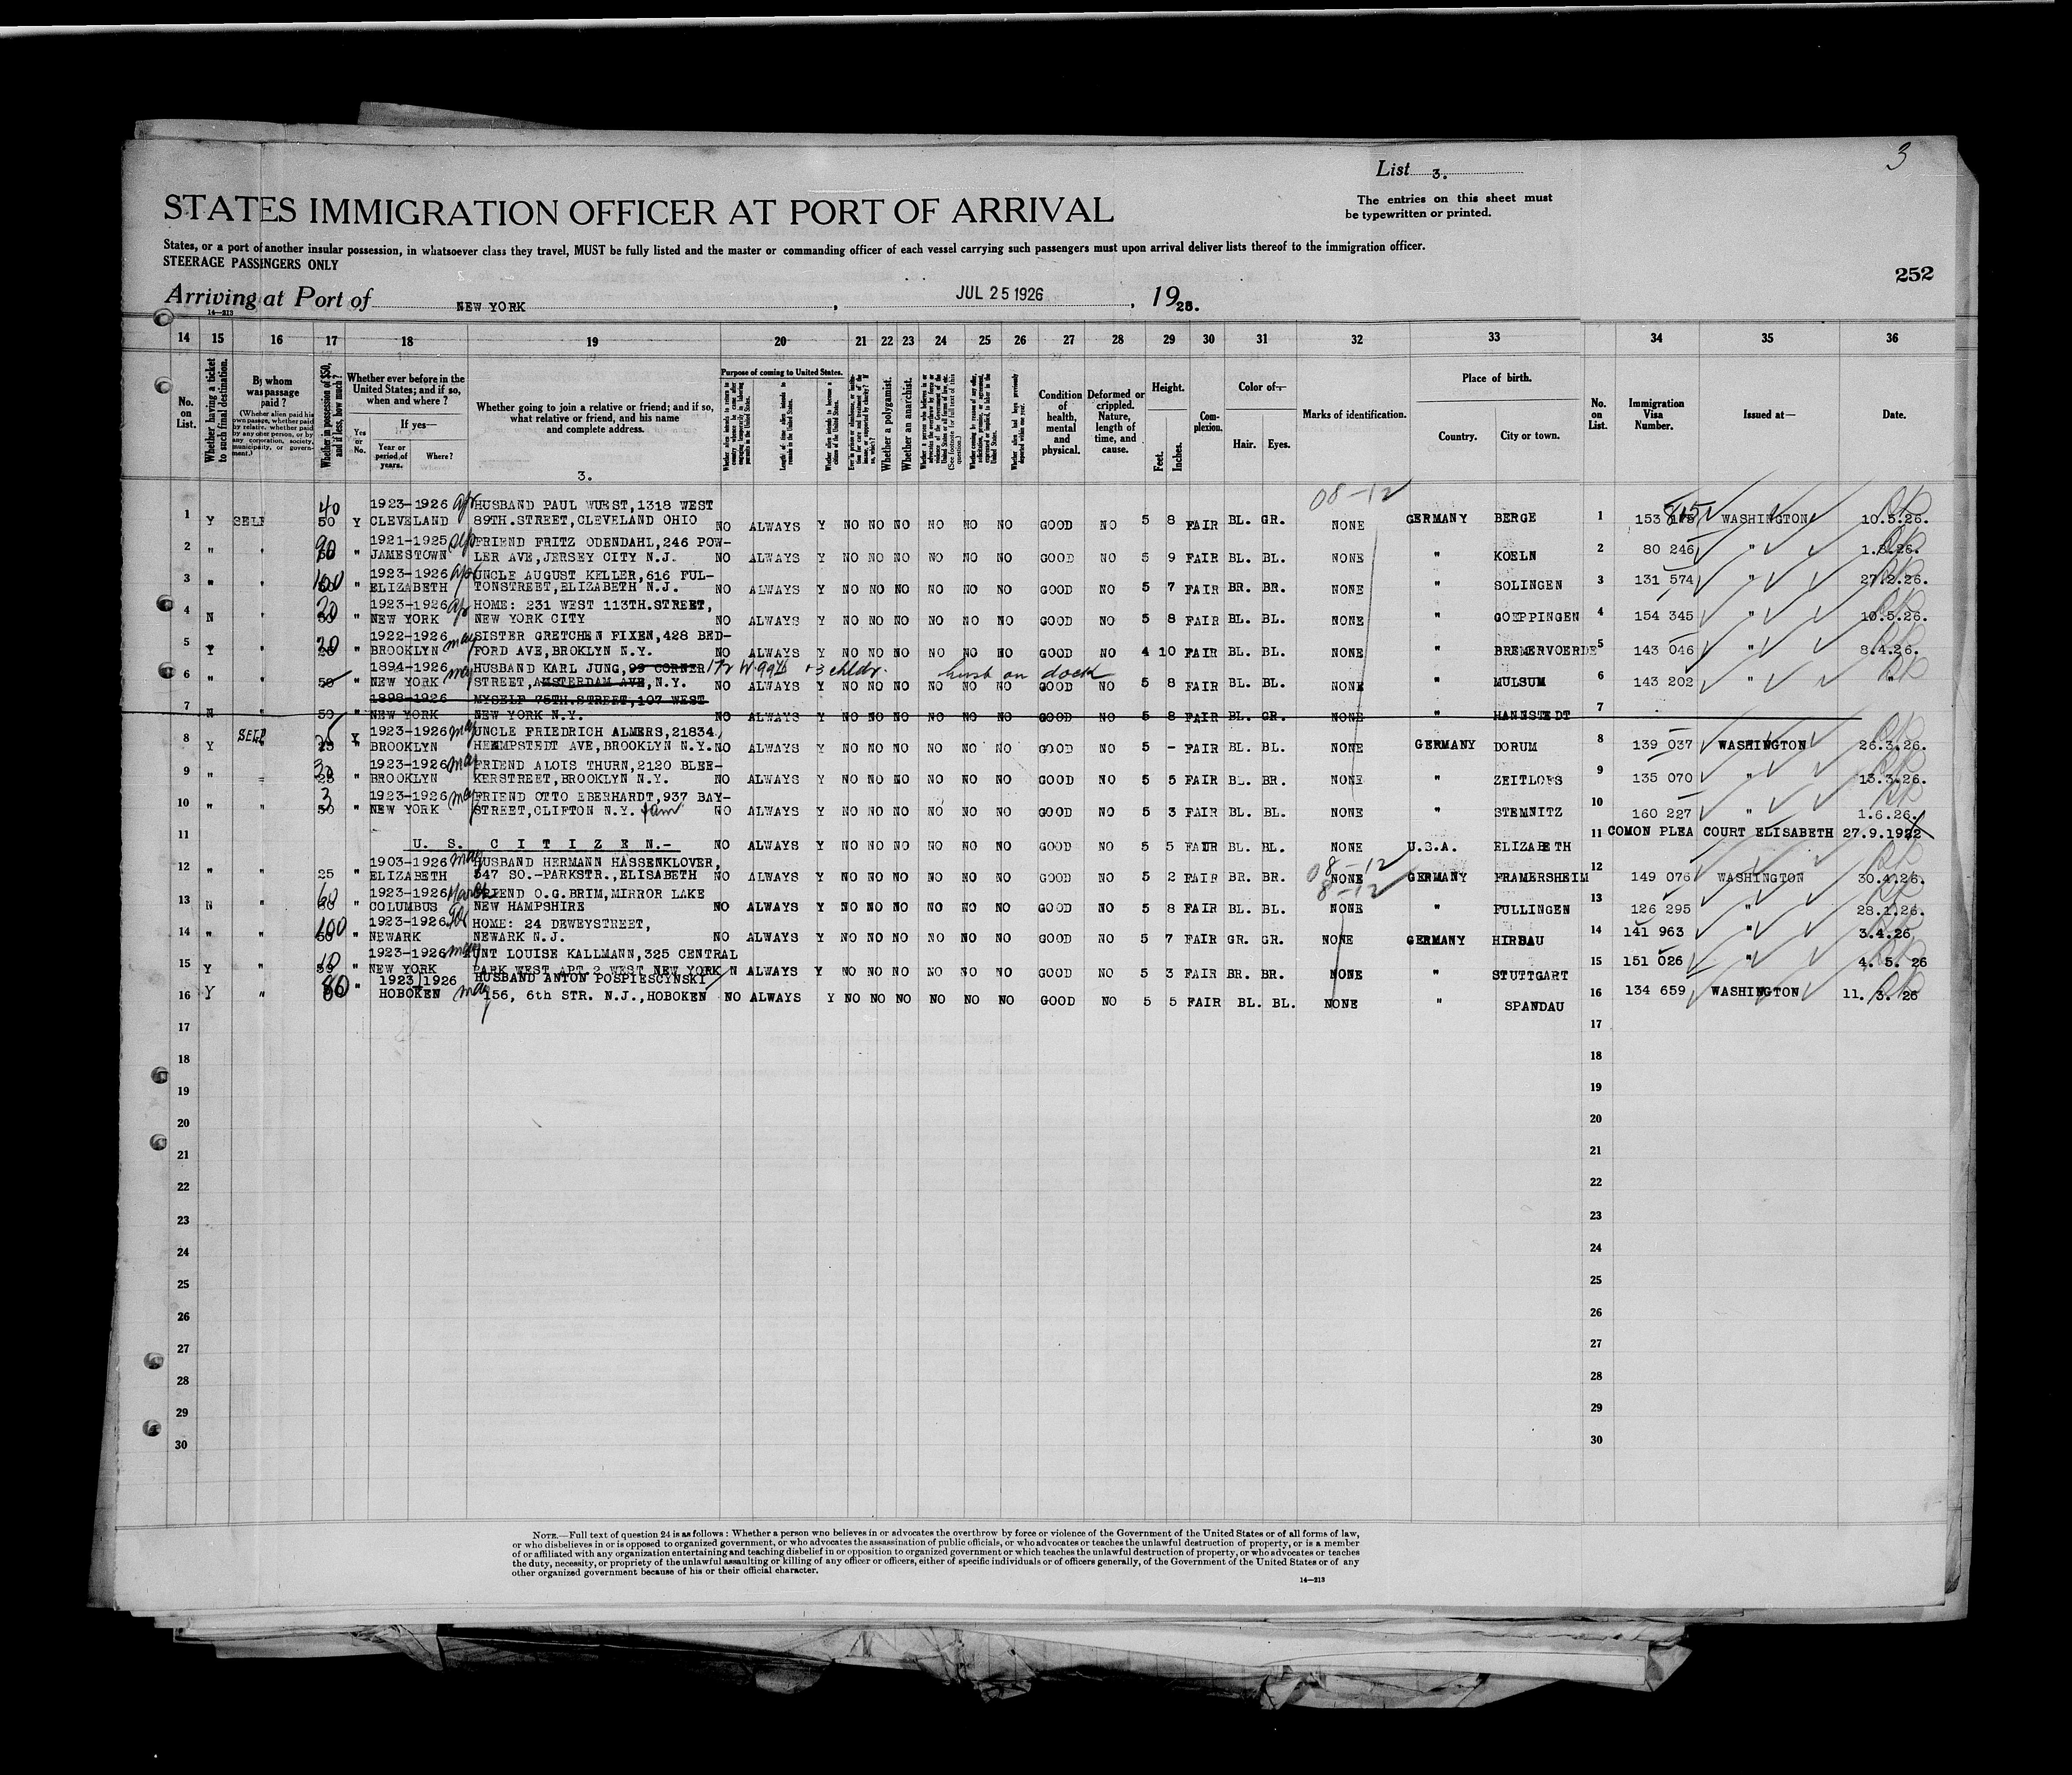 3
List 3.
The entries on this sheet must
be typewritten or printed.
STATES IMMIGRATION OFFICER AT PORT OF ARRIVAL
States, or a port of another insular possession, in whatsoever class they travel, MUST be fully listed and the master or commanding officer of each vessel carrying such passengers must upon arrival deliver lists thereof to the immigration officer.
STEERAGE PASSENGERS ONLY
252
Arriving at Port of NEW YORK, JUL 25 1926, 1926.
14—213
14 15 16 17 18 19 20 21 22 23 24 25 26 27 28 29 30 31 32 33 34 35 36
No. on List.
Whether having a ticket to such final destination.
By whom was passage paid?
(Whether alien paid his own passage, whether paid by relative, whether paid by any other person, or by any corporation, society, municipality, or government.)
Whether in possession of $50, and if less, how much?
Whether ever before in the United States; and if so, when and where?
Yes or No.
If yes—
Year or period of years.
Where?
Whether going to join a relative or friend; and if so, what relative or friend, and his name and complete address.
3.
Purpose of coming to United States.
Length of time alien intends to remain in the United States.
Whether alien intends to become a citizen of the United States.
Whether a polygamist.
Whether an anarchist.
Condition of health, mental and physical.
Deformed or crippled. Nature, length of time, and cause.
Height.
Feet.
Inches.
Complexion.
Color of—
Hair.
Eyes.
Marks of identification.
Place of birth.
Country.
City or town.
No. on List.
Immigration Visa Number.
Issued at—
Date.
08-12
1 Y SELF 40 50 Y 1923-1926 CLEVELAND HUSBAND PAUL WUEST,1318 WEST
89TH.STREET,CLEVELAND OHIO NO ALWAYS Y NO NO NO NO NO NO GOOD NO 5 8 FAIR BL. GR. NONE GERMANY BERGE 1 153 175 815 WASHINGTON 10.5.26.
2 " " " 1921-1925 JAMESTOWN FRIEND FRITZ ODENDAHL,246 POW-
LER AVE,JERSEY CITY N.J. NO ALWAYS Y NO NO NO NO NO NO GOOD NO 5 9 FAIR BL. BL. NONE " KOELN 2 80 246 " 1.8.26.
3 " " 100 " 1923-1926 ELIZABETH UNCLE AUGUST KELLER,616 FUL-
TONSTREET,ELIZABETH N.J. NO ALWAYS Y NO NO NO NO NO NO GOOD NO 5 7 FAIR BR. BR. NONE " SOLINGEN 3 131 574 " 27.2.26.
4 N " 20 " 1923-1926 NEW YORK HOME: 231 WEST 113TH.STREET,
NEW YORK CITY NO ALWAYS Y NO NO NO NO NO NO GOOD NO 5 8 FAIR BL. BL. NONE " GOEPPINGEN 4 154 345 " 10.5.26.
5 Y " 20 " 1922-1926 BROOKLYN may SISTER GRETCHEN FIXEN,428 BED-
FORD AVE,BROKLYN N.Y. NO ALWAYS Y NO NO NO NO NO NO GOOD NO 4 10 FAIR BL. BL. NONE " BREMERVOERDE 5 143 046 " 8.4.26.
6 " " 50 " 1894-1926 NEW YORK may HUSBAND KARL JUNG,99 CORNER W 99th +3 chldr. husb on dock
STREET,AMSTERDAM AVE,N.Y. NO ALWAYS Y NO NO NO NO NO NO GOOD NO 5 8 FAIR BL. BL. NONE " MULSUM 6 143 202 " "
7 N " 50 " 1898-1926 NEW YORK MYSELF 75TH.STREET,107 WEST
NEW YORK N.Y. NO ALWAYS Y NO NO NO NO NO NO GOOD NO 5 8 FAIR BL. GR. NONE " HANNSTEDT 7
8 Y SELF 25 Y 1923-1926 BROOKLYN may UNCLE FRIEDRICH ALMERS,21834
HEMPSTEDT AVE,BROOKLYN N.Y. NO ALWAYS Y NO NO NO NO NO NO GOOD NO 5 - FAIR BL. BL. NONE GERMANY DORUM 8 139 037 WASHINGTON 26.3.26.
9 " " 25 " 1923-1926 BROOKLYN may FRIEND ALOIS THURN,2120 BLEE-
KERSTREET,BROOKLYN N.Y. NO ALWAYS Y NO NO NO NO NO NO GOOD NO 5 5 FAIR BL. BR. NONE " ZEITLOFS 9 135 070 " 13.3.26.
10 " " 3 50 " 1923-1926 NEW YORK may FRIEND OTTO EBERHARDT,937 BAY-
STREET,CLIFTON N.Y. NO ALWAYS Y NO NO NO NO NO NO GOOD NO 5 3 FAIR BL. BL. NONE " STEMNITZ 10 160 227 " 1.6.26.
11 U. S. CITIZEN.- NO ALWAYS Y NO NO NO NO NO NO GOOD NO 5 5 FAIR BL. BL. NONE U.S.A. ELIZABETH 11 COMON PLEA COURT ELISABETH 27.9.1922
08-12
12 25 " 1903-1926 ELIZABETH may HUSBAND HERMANN HASSENKLOVER,
547 SO.-PARKSTR.,ELISABETH NO ALWAYS Y NO NO NO NO NO NO GOOD NO 5 2 FAIR BR. BR. NONE GERMANY FRAMERSHEIM 12 149 076 WASHINGTON 30.4.26.
8-12
13 N " 60 " 1923-1926 COLUMBUS March FRIEND O.G.BRIM,MIRROR LAKE
NEW HAMPSHIRE NO ALWAYS Y NO NO NO NO NO NO GOOD NO 5 8 FAIR BL. BL. NONE " FULLINGEN 13 126 295 " 28.1.26.
14 " " 100 50 " 1923-1926 NEWARK HOME: 24 DEWEYSTREET,
NEWARK N.J. NO ALWAYS Y NO NO NO NO NO NO GOOD NO 5 7 FAIR GR. GR. NONE GERMANY HIRBAU 14 141 963 " 3.4.26
15 Y " 10 " 1923-1926 NEW YORK may AUNT LOUISE KALLMANN,325 CENTRAL
PARK WEST APT 2 WEST NEW YORK N ALWAYS Y NO NO NO NO NO NO GOOD NO 5 3 FAIR BR. BR. NONE " STUTTGART 15 151 026 " 4. 5. 26
16 Y " 80 " 1923 1926 HOBOKEN may HUSBAND ANTON POSPIESCYNSKI
156, 6th STR. N.J.,HOBOKEN NO ALWAYS Y NO NO NO NO NO NO GOOD NO 5 5 FAIR BL. BL. NONE " SPANDAU 16 134 659 WASHINGTON 11. 3. 26
17 17
18 18
19 19
20 20
21 21
22 22
23 23
24 24
25 25
26 26
27 27
28 28
29 29
30 30
NOTE.—Full text of question 24 is as follows: Whether a person who believes in or advocates the overthrow by force or violence of the Government of the United States or of all forms of law,
or who disbelieves in or is opposed to organized government, or who advocates the assassination of public officials, or who advocates or teaches the unlawful destruction of property, or is a member
of or affiliated with any organization entertaining and teaching disbelief in or opposition to organized government or which teaches the unlawful destruction of property, or who advocates or teaches
the duty, necessity, or propriety of the unlawful assaulting or killing of any officer or officers, either of specific individuals or of officers generally, of the Government of the United States or of any
other organized government because of his or their official character.
14—213